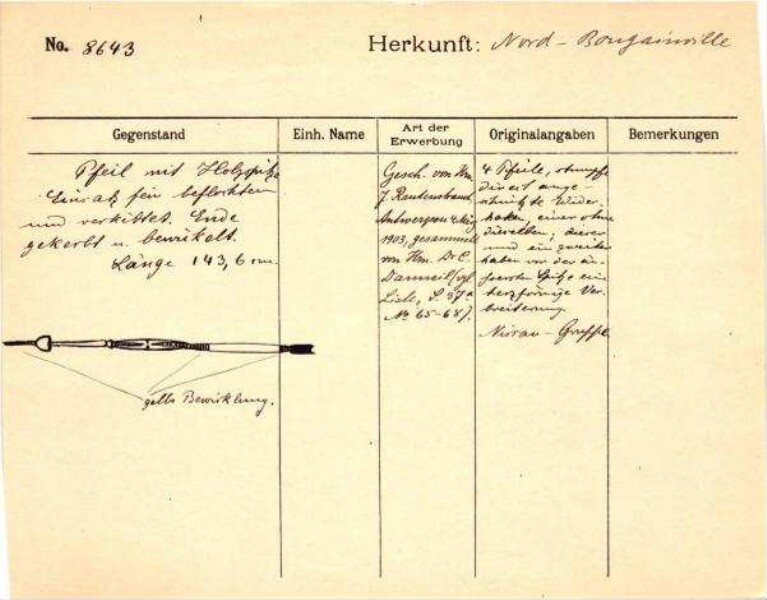 No. 8643
Herkunft: Nord-Bougainville
Gegenstand
Einh. Name
Art der
Erwerbung
Originalangaben
Bemerkungen
Pfeil mit Holzspitze
Einsatz fein beflochten
und verkittet. Ende
gekerbt u. bewickelt.
Länge 143,6 cm.
gelbe Bewicklung.
Gesch. von Hrn.
J. Rautenstrauch,
Antwerpen
1903, gesammelt
von Hrn. Dr. C.
Danneil (vgl.
Liste, S. 37a
No 65-68).
4 Pfeile, stumpfe
direct ange-
schnitzte Wider-
haken, einer ohne
dieselben; dieser
und ein zweiter
haben vor der äu-
ssersten Spitze eine
herzförmige Ver-
breiterung.
Nissau-Gruppe